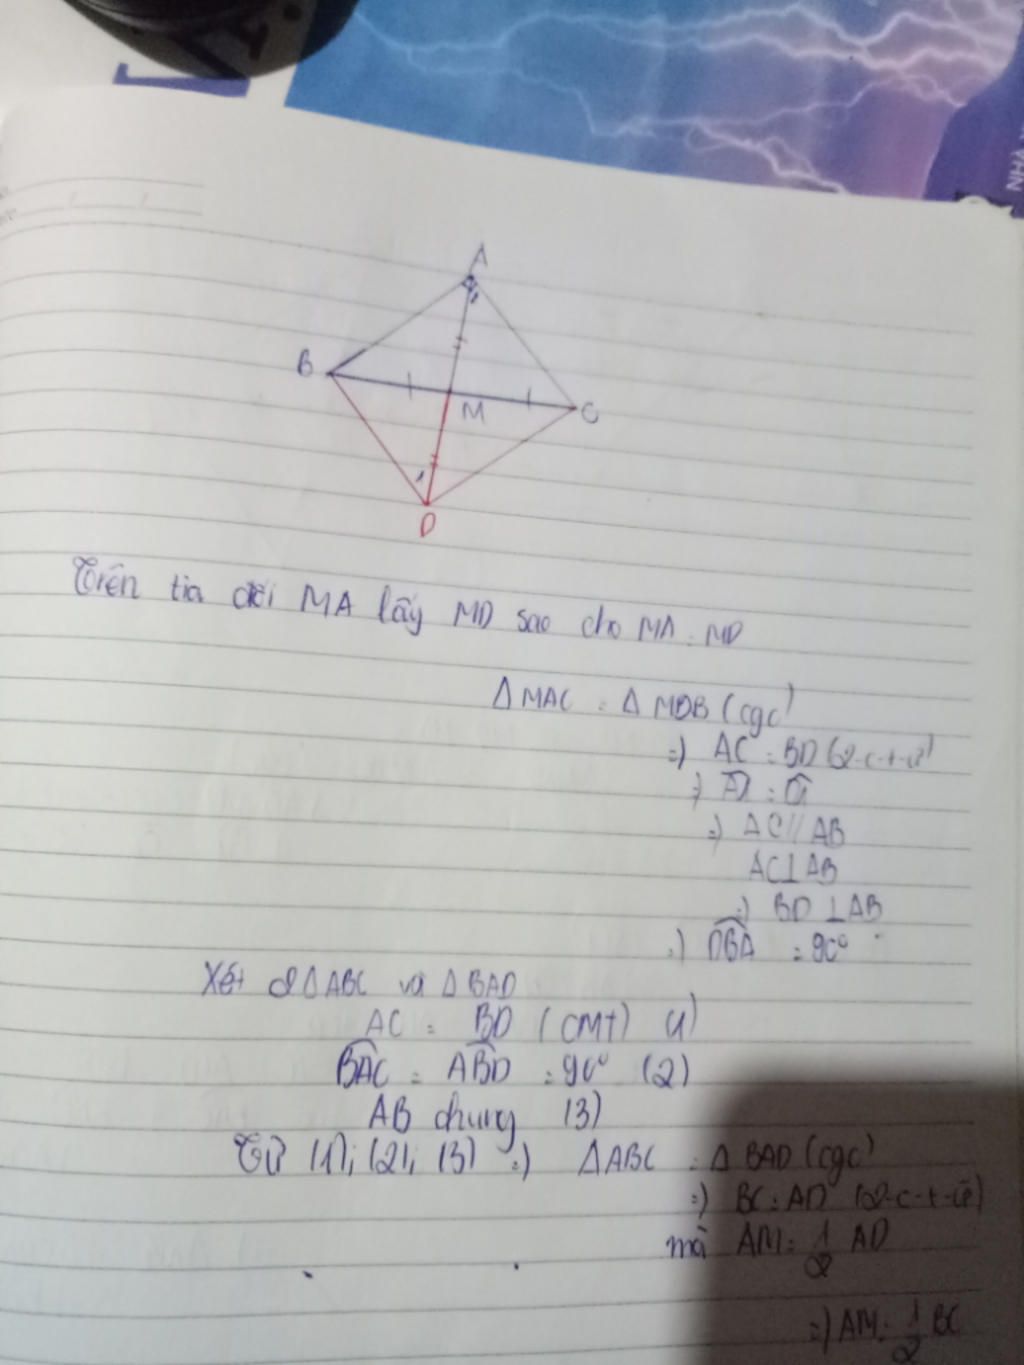 NHÀ
A
B
M
C
1
D
Trên tia đối MA lấy MD sao cho MA = MD
Δ MAC = Δ MDB (cgc)
=) AC = BD (2-c-t-ư)
=)
=) AC // AB
AC ⊥ AB
=) BD ⊥ AB
=) DBA = 90°
Xét 2 Δ ABC và Δ BAD
AC = BD (CMT) (1)
BAC = ABD = 90° (2)
AB chung (3)
Từ (1); (2); (3) =) Δ ABC = Δ BAD (cgc)
=) BC = AD (2-c-t-ư)
mà AM = 1/2 AD
=) AM = 1/2 BC